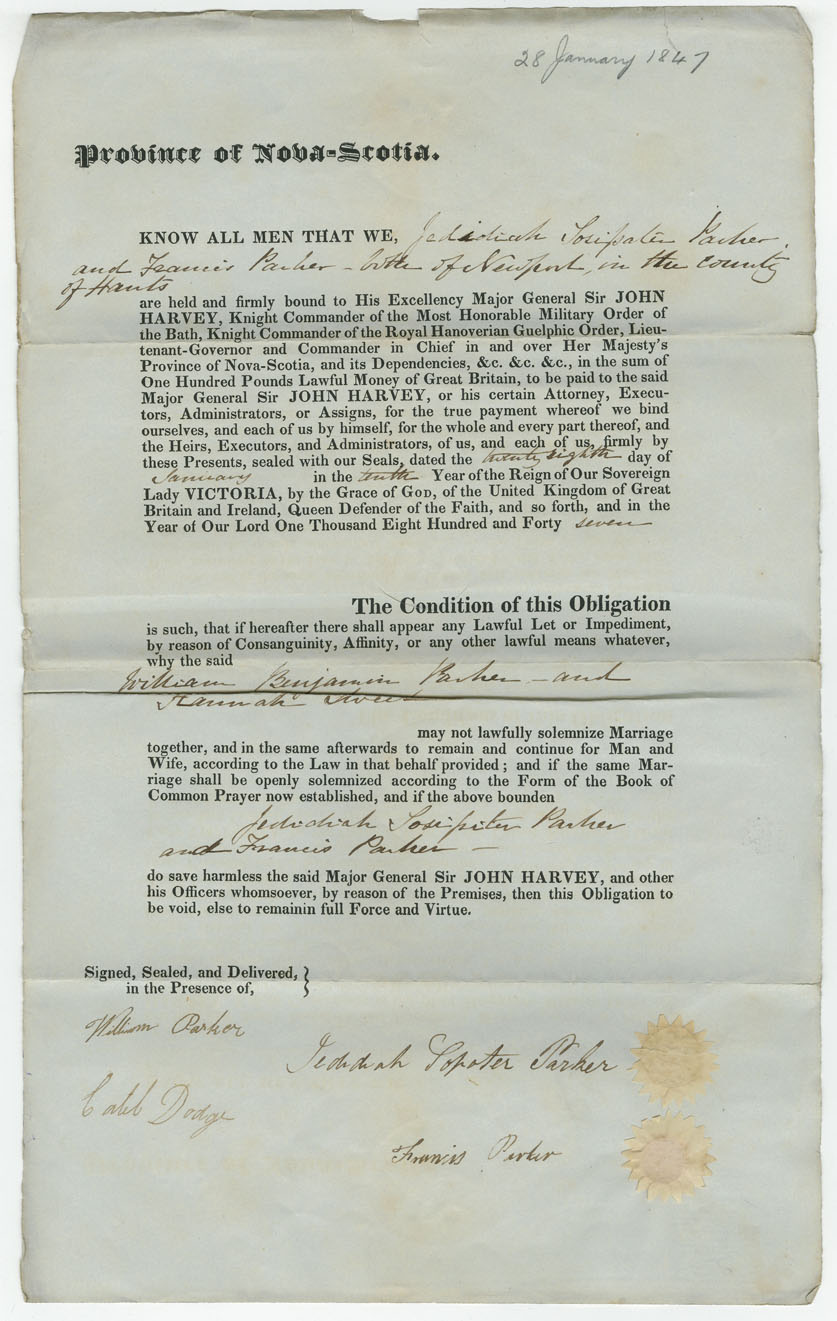 28 January 1847
Province of Nova-Scotia.
KNOW ALL MEN THAT WE, Jedidiah Sosipater Parker,
and Francis Parker – both of Newport, in the County
of Hants
are held and firmly bound to His Excellency Major General Sir JOHN
HARVEY, Knight Commander of the Most Honorable Military Order of
the Bath, Knight Commander of the Royal Hanoverian Guelphic Order, Lieu-
tenant-Governor and Commander in Chief in and over Her Majesty's
Province of Nova-Scotia, and its Dependencies, &c. &c. &c., in the sum of
One Hundred Pounds Lawful Money of Great Britain, to be paid to the said
Major General Sir JOHN HARVEY, or his certain Attorney, Execu-
tors, Administrators, or Assigns, for the true payment whereof we bind
ourselves, and each of us by himself, for the whole and every part thereof, and
the Heirs, Executors, and Administrators, of us, and each of us, firmly by
these Presents, sealed with our Seals, dated the twenty eighth day of
January in the tenth Year of the Reign of Our Sovereign
Lady VICTORIA, by the Grace of GOD, of the United Kingdom of Great
Britain and Ireland, Queen Defender of the Faith, and so forth, and in the
Year of Our Lord One Thousand Eight Hundred and Forty seven
The Condition of this Obligation
is such, that if hereafter there shall appear any Lawful Let or Impediment,
by reason of Consanguinity, Affinity, or any other lawful means whatever,
why the said
William Benjamin Parker – and
Hannah
may not lawfully solemnize Marriage
together, and in the same afterwards to remain and continue for Man and
Wife, according to the Law in that behalf provided; and if the same Mar-
riage shall be openly solemnized according to the Form of the Book of
Common Prayer now established, and if the above bounden
Jedidiah Sosipiter Parker
and Francis Parker –
do save harmless the said Major General Sir JOHN HARVEY, and other
his Officers whomsoever, by reason of the Premises, then this Obligation to
be void, else to remainin full Force and Virtue.
Signed, Sealed, and Delivered, }
in the Presence of,
William Parker
Jedidiah Sopater Parker
Caleb Dodge
Francis Parker